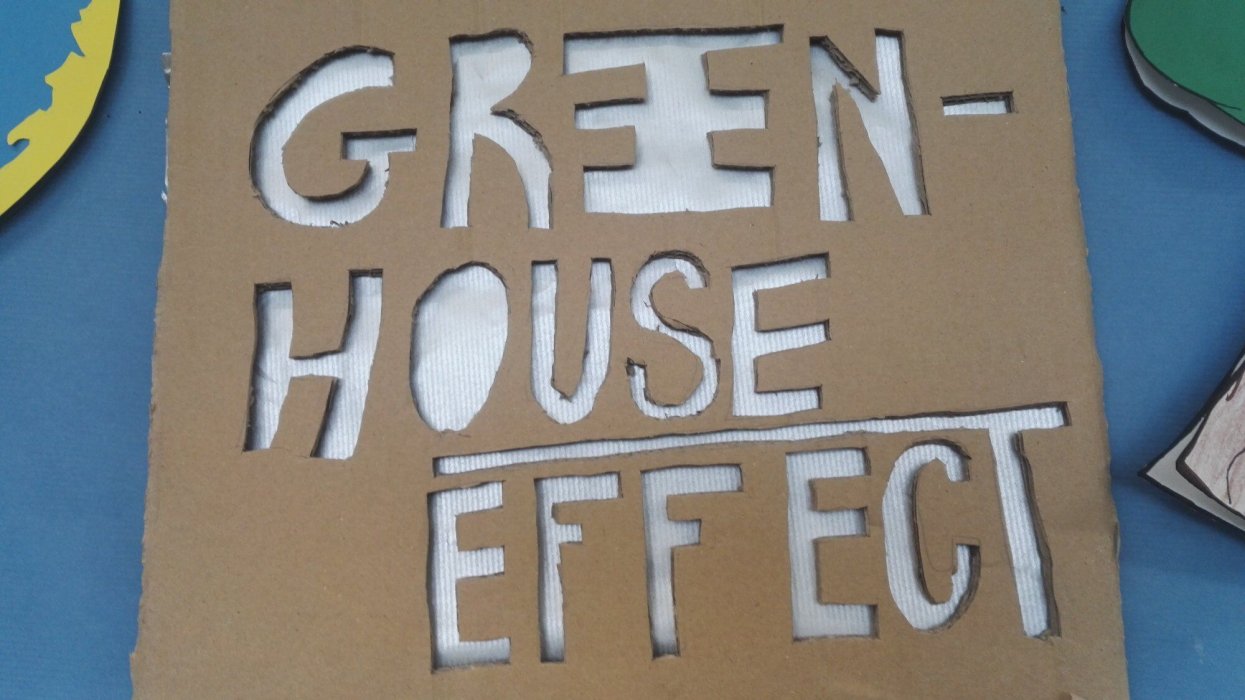 GREEN-
HOUSE
EFFECT